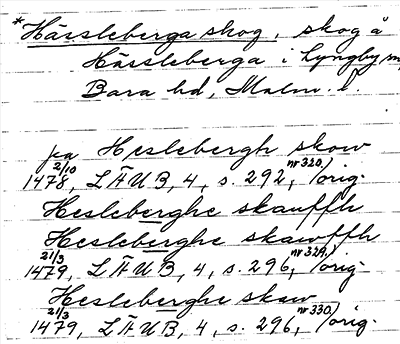 *Hässleberga skog, skog å
Hässleberga i Lyngby sn,
Bara hd, Malm. l.
pa Heslebergh skow
2/10 1478, LÄUB, 4, s. 292, nr 320, orig.
Hesleberghe skauffh
Hesleberghe skawffh
21/3 1479, LÄUB, 4, s. 296, nr 329, orig.
Hesleberghe skaw
21/3 1479, LÄUB, 4, s. 296, nr 330, orig.